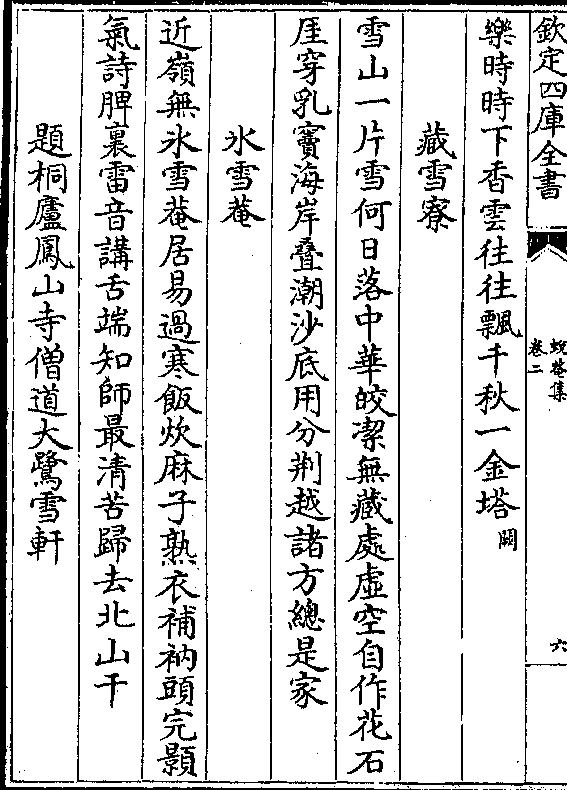 欽定四庫全書
蛻菴集
卷二
六
樂時時下香雲往往飄千秋一金塔闕
藏雪寮
雪山一片雪何日落中華皎潔無藏處虛空自作花石
厓穿乳竇海岸疊潮沙底用分荆越諸方總是家
氷雪菴
近嶺無氷雪菴居易過寒飯炊麻子熟衣補衲頭完顥
氣詩脾裏雷音講舌端知師最清苦歸去北山干
題桐廬鳳山寺僧道大鷺雪軒